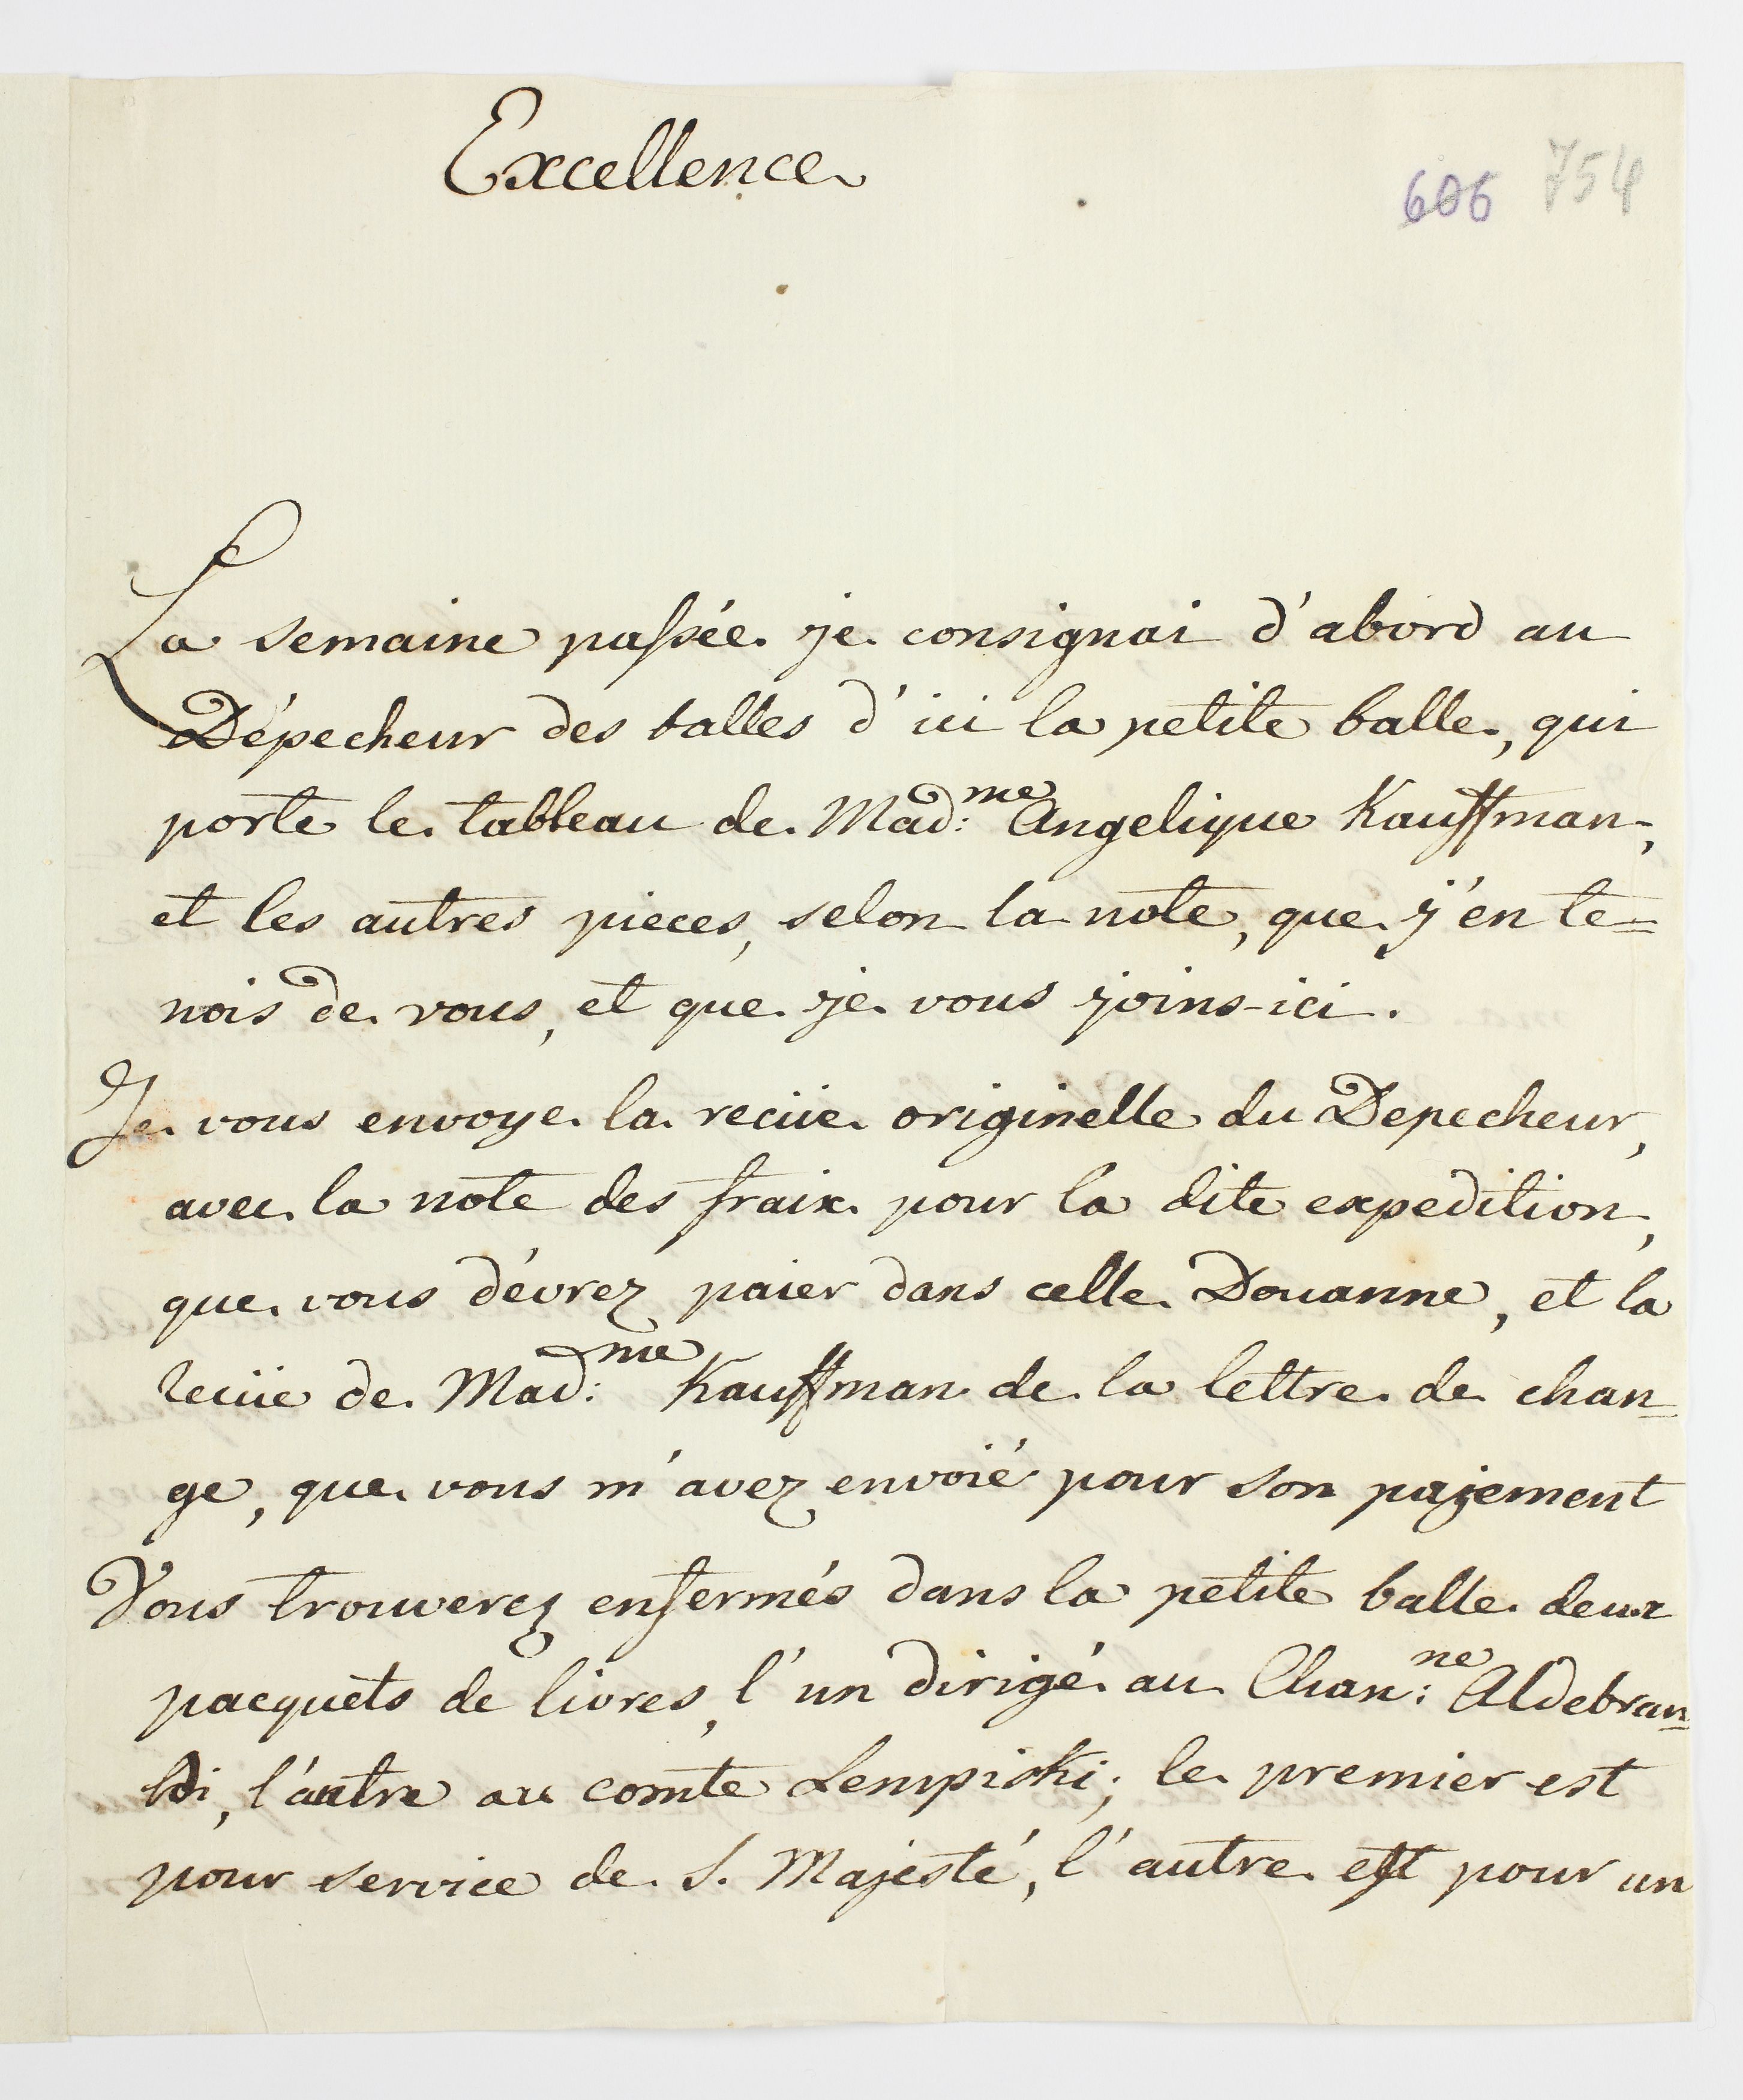 Excellence
606 754
La semaine passée je consignai d'abord au
Dépecheur des balles d'ici la petite balle, qui
porte le tableau de Mad:me Angelique Kauffman,
et les autres pieces, selon la note, que j'en te=
nois de vous, et que je vous joins-ici.
Je vous envoye la reciie originelle du Depecheur,
avec la note des fraix pour la dite expedition,
que vous dévrez paier dans celle Douanne, et la
reciie de Mad:me Kauffman de la lettre de chan=
ge, que vous m'avez envoié pour son pajement
Vous trouverez enfermés dans la petite balle deux
pacquets de livres, l'un dirigé au Chan:ne Aldebran=
di, l'autre au comte Lempiski; le premier est
pour service de S. Majesté, l'autre est pour un